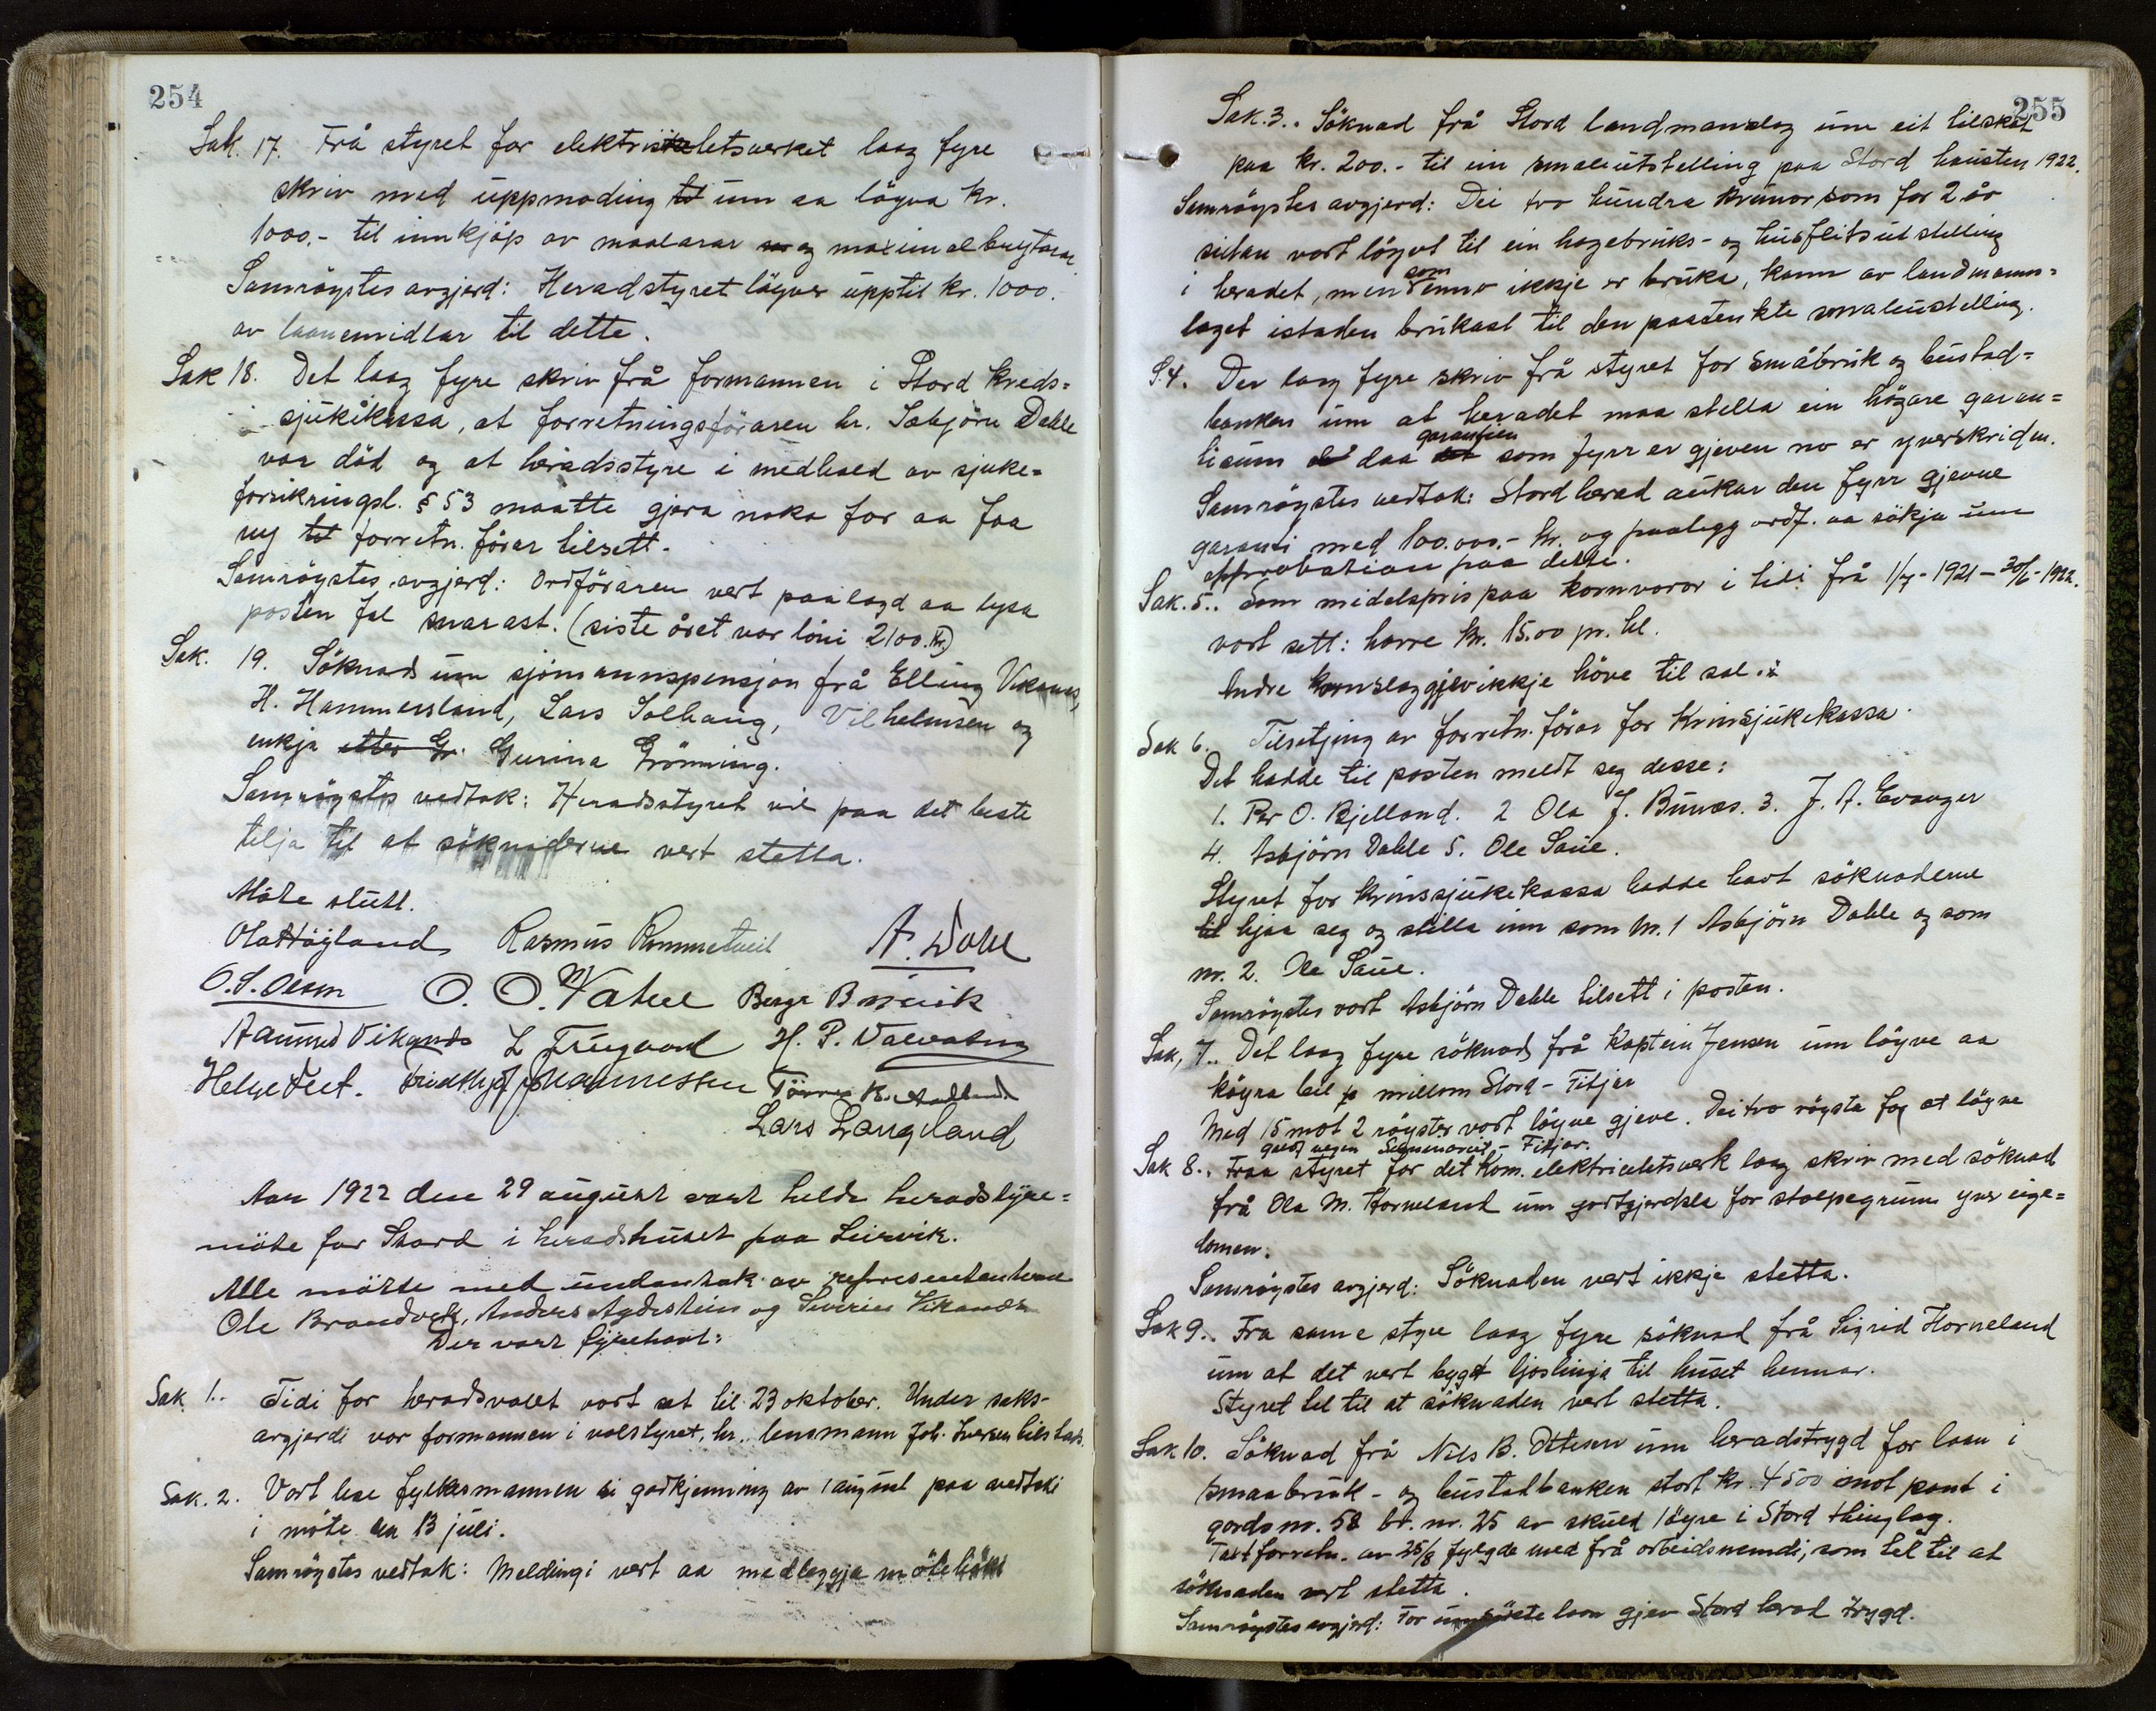 254
Sak. 17. Frå styret for elektrisitetsverket laag fyre
skriv med uppmoding til um aa löyva kr.
1000.- til innkjøp av maalarar og maximalbrytarar
Samröystes avgjerd: Heradstyret löyver upptil kr. 1000.
av laanemidlar til dette.
Sak 18. Det laag fyre skriv frå formannen i Stord kreds=
sjukikassa, at forretningsföraren hr. Asbjörn Dahle
var död og at heradsstyre i medhald av sjuke=
forsikringsl. § 53 maatte gjera noko for aa faa
ny til forretn. förar tilsett.
Samröystes avgjerd: Ordföraren vert paalagd aa lysa
posten fal snarast. (siste året var löni 2100.kr)
Sak. 19. Söknad um sjömannspensjon frå Elling Vikanes,
H. Hammersland, Lars Solhaug, Vilhelmsen og
enkja etter Gr. Gurina Grönning.
Samröystes vedtak: Heradsstyret vil paa det beste
telja til at söknaderne vert stetta.
Möte slutt.
Ola Höyland Rasmus Rommetveit A. Dahl
O. S. Olsen O. O. Vatne Berge Bruvik
Aamund Vikanes L Trygvad H. P. Valvatna
Helge Tveit. Fridthjof Johannessen Törres K. Aadland
Lars Langeland
Aar 1922 den 29 august vart helde heradstyre=
möte for Stord i heradshuset paa Leirvik.
Alle mötte med undantak av representantane
Ole Brandvik, Anders Agdestein og Severin Vikanes
Der vart fyrehavt:
Sak 1.. Tidi for heradsvalet vart set til 23 oktober. Under saks-
avgjerdi var formannen i valstyret, hr. lensmann Joh. Iversen tilstads.
Sak. 2. Vart lese fylkesmannen si godkjenning av 1 august paa vedtaki
i møte den 13 juli.
Samröystes vedtak: Meldingi vert aa medleggja möteboki
255
Sak. 3.. Söknad frå Stord landmanslag um eit tilskot
paa kr. 200.- til ein smaleutstelling paa Stord hausten 1922.
Samröystes avgjerd: Dei tvo hundra krunor som for 2 år
sidan vart löyvt til ein hagebruks- og husflitsutstelling
i heradet, men som enno ikkje er bruka, kann av landmanns=
laget istaden brukast til den paatenkte smaleustelling.
S. 4. Der laag fyre skriv frå styret for småbruk og bustad=
banken um at heradet maa stella ein högare garan=
tisum då daa det garantien som fyrr er gjeven no er yverskriden.
Samröystes vedtak: Stord herad aukar den fyrr gjevne
garanti med 100.000.- kr. og paalegg ordf. aa sökja um
approbation paa dette.
Sak. 5.. Som midelspris paa kornvaror i tidi frå 1/7-1921-30/6-1922.
vart sett: havre kr. 15.00 pr. hl.
Andre kornslag gjev ikkje höve til sal.
Sak 6. Tilsetjing av forretn. förar for Krinssjukekassa.
Det hadde til posten meldt seg desse:
1. Per O. Bjelland. 2 Ola J. Bunæs. 3. J. A. Evanger
4. Asbjörn Dahle 5. Ole Saue.
Styret for Krinssjukekassa hadde havt söknaderne
til hjaa seg og stilla inn som nr. 1 Asbjörn Dahle og som
nr. 2. Ole Saue.
Samröystes vart Asbjörn Dahle tilsett i posten.
Sak, 7.. Det laag fyre söknad frå kaptein Jensen um löyve aa
köyra bil millom Stord - Fitjar
Med 15 mot 2 röyster vart löyve gjeve. Dei tvo röysta for at löyve
galdt vegen - Fitjar.
Sak 8.. Fraa styret for det kom. elektricitetsverk laag skriv med söknad
frå Ola M. Horneland um godtgjerdsle for stolpegrunn yver eige=
domen.
Samröystes avgjerd: Söknaden vert ikkje stetta.
Sak 9.. Fra same styre laag fyre söknad frå Sigrid Horneland
um at det vert bygt ljoslinja til huset hennar.
Styret tel til at söknaden vert stetta.
Sak 10. Söknad frå Nils B. Ottesen um heradstrygd for laan i
smaabruk- og bustadbanken stort kr. 4500 imot pant i
gards nr. 58 br. nr. 25 av skuld 1 öyre i Stord thinglag.
Taxtforretn. av 25/8 fylgde med frå arbeidsnemdi, som tel til at
söknaden vert stetta.
Samröystes avgjerd: For umsökte laan gjev Stord herad trygd.